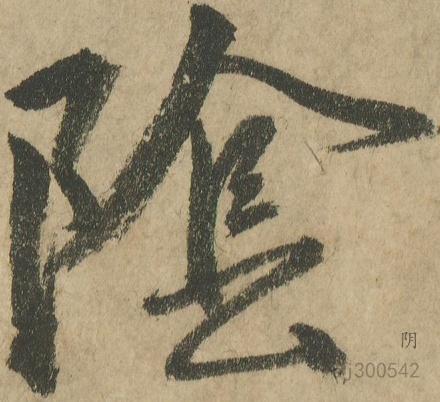 陰
阴
j300542